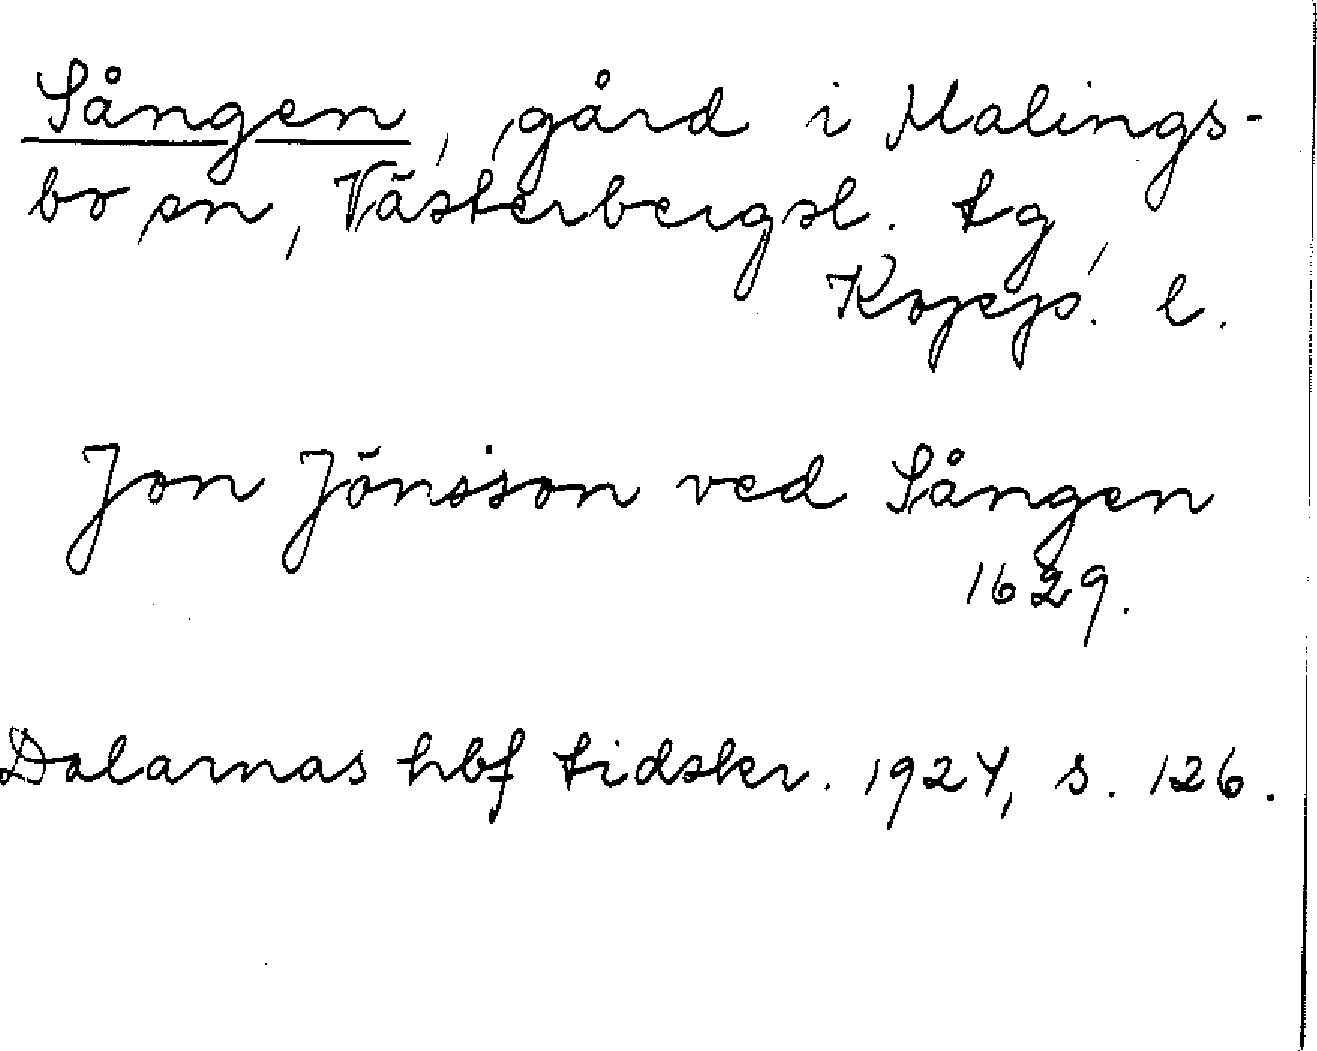 Sången, gård i Malings-
bo sn, Västerbergsl. tg,
Kopps. l.
Jon Jönsson ved Sången
1629.
Dalarnas hbf tidskr. 1924, s. 126.